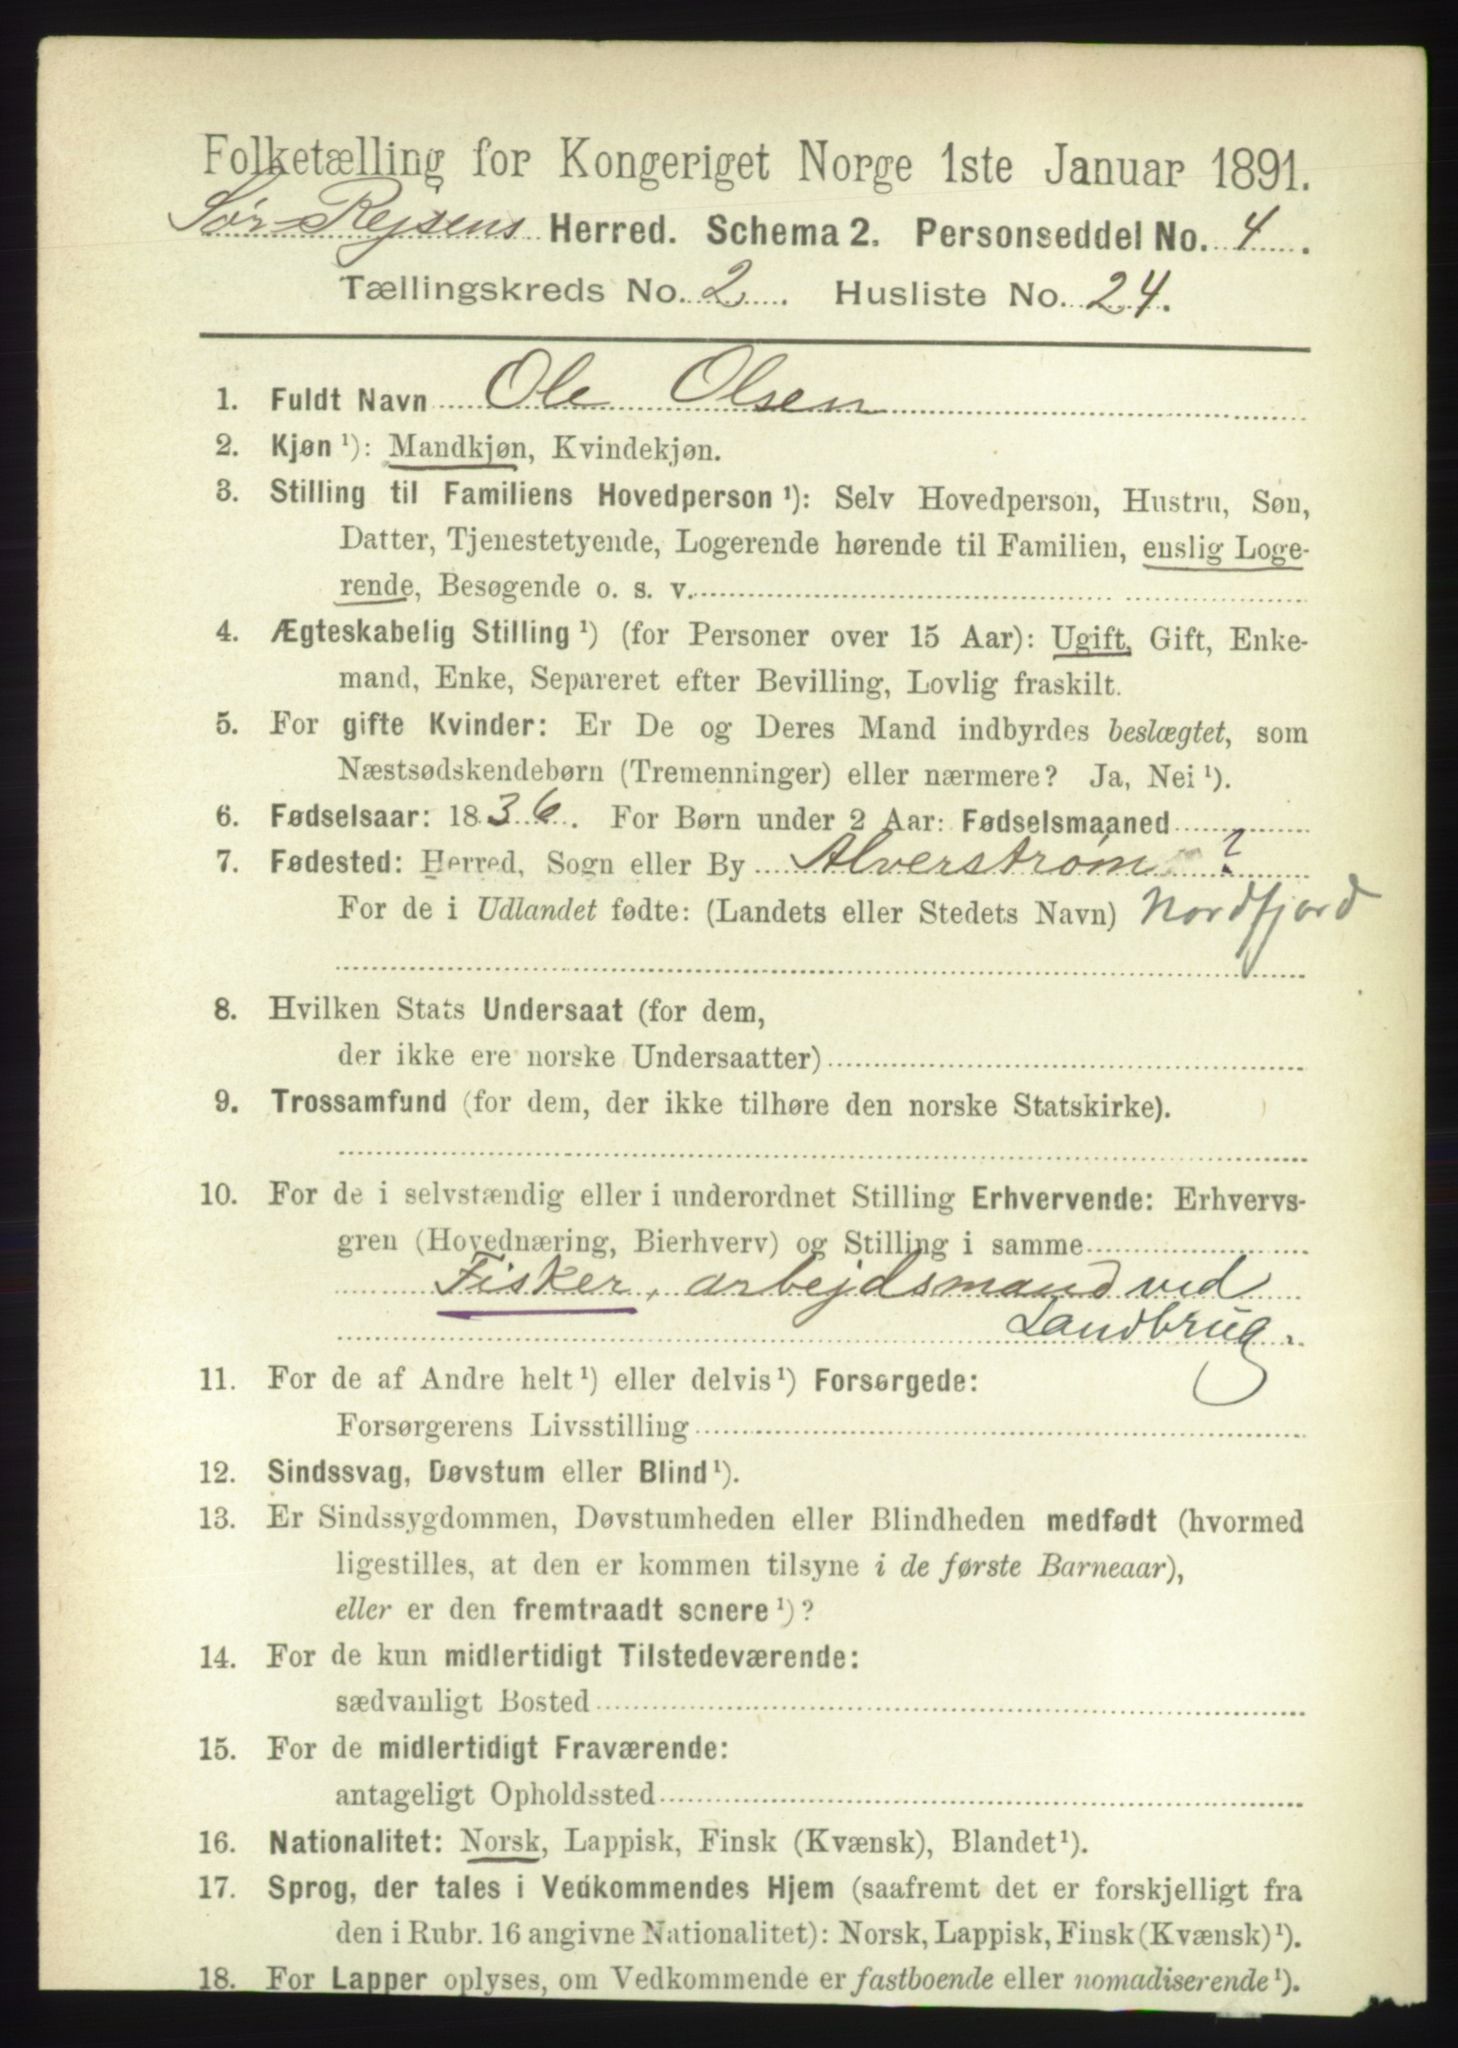 Folketælling for Kongeriget Norge 1ste Januar 1891.
Sør-Rejsens Herred. Schema 2. Personseddel No. 4.
Tællingskreds No. 2. Husliste No. 24.
1. Fuldt Navn Ole Olsen
2. Kjøn ¹): Mandkjøn, Kvindekjøn.
3. Stilling til Familiens Hovedperson ¹): Selv Hovedperson, Hustru, Søn,
Datter, Tjenestetyende, Logerende hørende til Familien, enslig Loge-
rende, Besøgende o. s. v.
4. Ægteskabelig Stilling ¹) (for Personer over 15 Aar): Ugift, Gift, Enke-
mand, Enke, Separeret efter Bevilling, Lovlig fraskilt.
5. For gifte Kvinder: Er De og Deres Mand indbyrdes beslægtet, som
Næstsødskendebørn (Tremenninger) eller nærmere? Ja, Nei ¹).
6. Fødselsaar: 1836. For Børn under 2 Aar: Fødselsmaaned
7. Fødested: Herred, Sogn eller By Alverstrøm ?
For de i Udlandet fødte: (Landets eller Stedets Navn) Nordfjord
8. Hvilken Stats Undersaat (for dem,
der ikke ere norske Undersaatter)
9. Trossamfund (for dem, der ikke tilhøre den norske Statskirke).
10. For de i selvstændig eller i underordnet Stilling Erhvervende: Erhvervs-
gren (Hovednæring, Bierhverv) og Stilling i samme
Fisker, arbejdsmand ved
Landbrug.
11. For de af Andre helt ¹) eller delvis ¹) Forsørgede:
Forsørgerens Livsstilling
12. Sindssvag, Døvstum eller Blind ¹).
13. Er Sindssygdommen, Døvstumheden eller Blindheden medfødt (hvormed
ligestilles, at den er kommen tilsyne i de første Barneaar),
eller er den fremtraadt senere ¹)?
14. For de kun midlertidigt Tilstedeværende:
sædvanligt Bosted
15. For de midlertidigt Fraværende:
antageligt Opholdssted
16. Nationalitet: Norsk, Lappisk, Finsk (Kvænsk), Blandet ¹).
17. Sprog, der tales i Vedkommendes Hjem (saafremt det er forskjelligt fra
den i Rubr. 16 angivne Nationalitet): Norsk, Lappisk, Finsk (Kvænsk) ¹).
18. For Lapper oplyses, om Vedkommende er fastboende eller nomadiserende ¹).